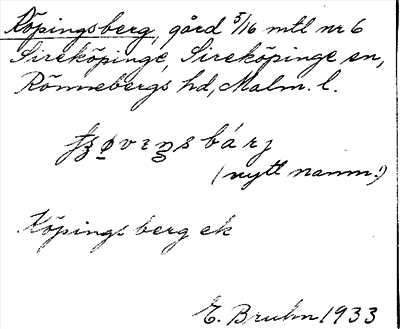 Köpingsberg, gård 5/16 mtl nr 6
Sireköpinge, Sireköpinge sn,
Rönnebergs hd, Malm. l.
(nytt namn!)
Köpingsberg ek
E. Bruhn 1933